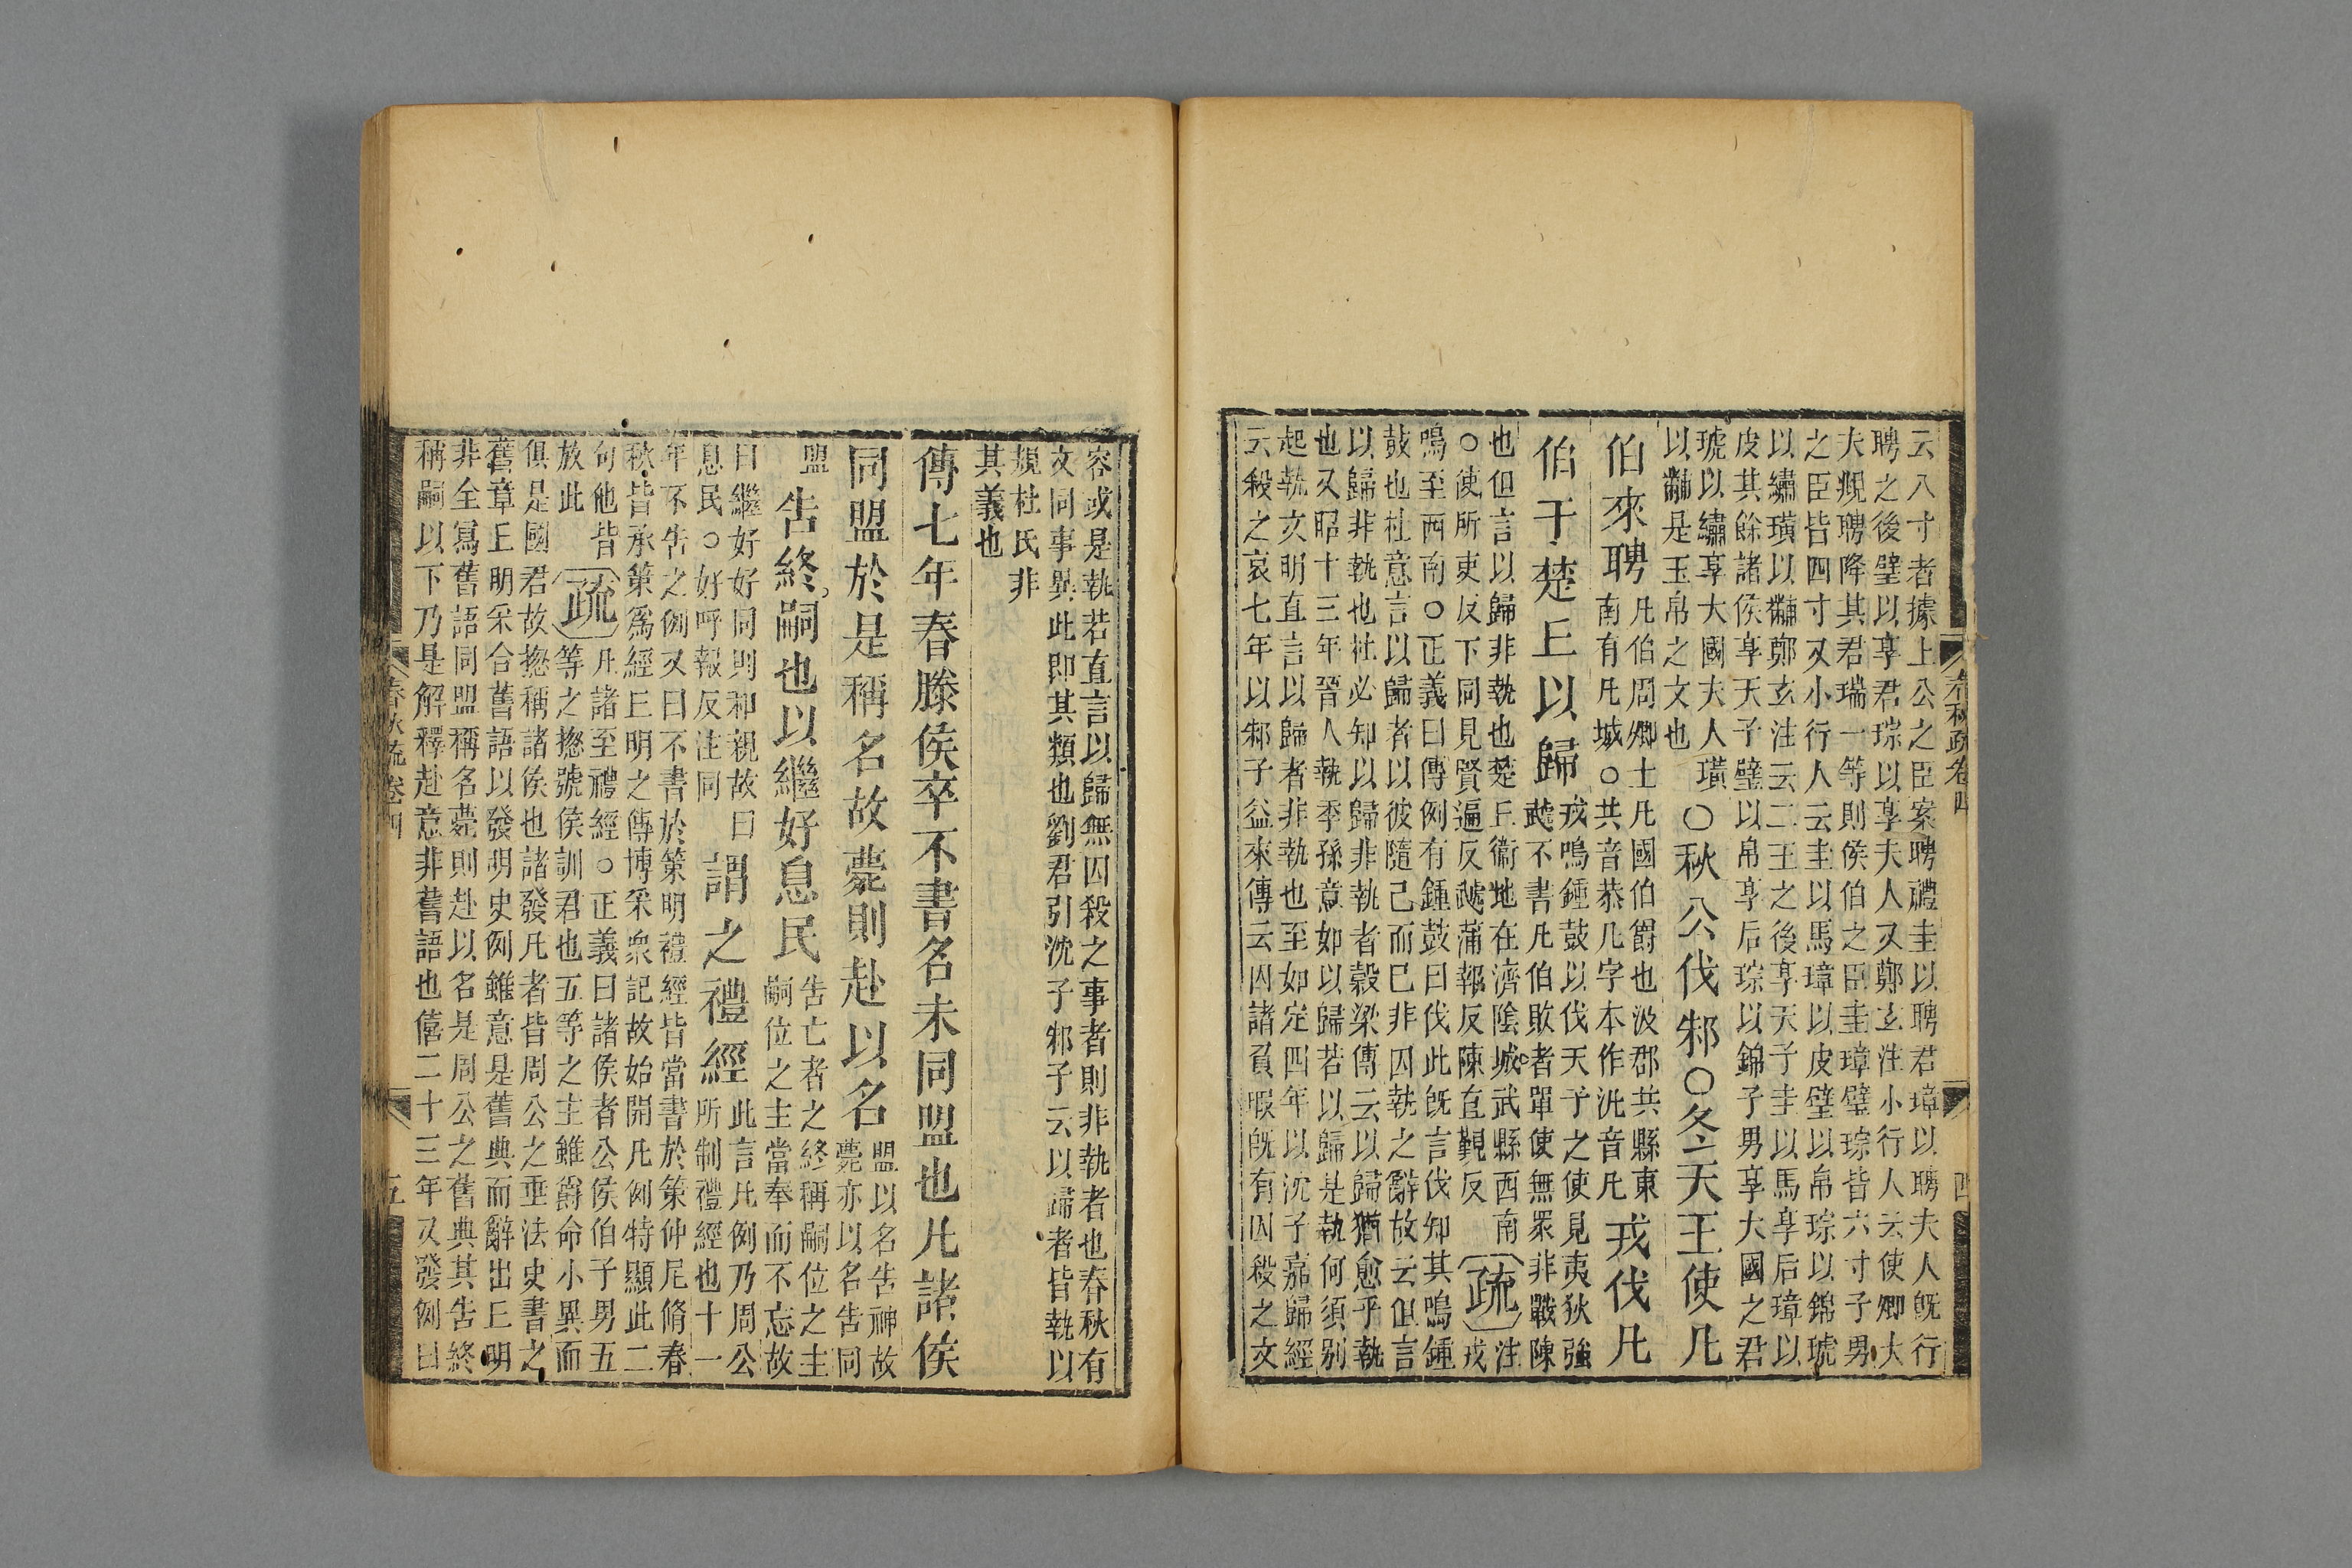 云八寸者據上公之臣案聘禮圭以聘君璋以聘夫人既行
聘之後璧以享君琮以享夫人又鄭玄注小行人云使卿大
夫覜聘降其君瑞一等則侯伯之臣圭璋璧琮皆六寸子男
之臣皆四寸又小行人云圭以馬璋以皮璧以帛琮以錦琥
以繡璜以黼鄭玄注云二王之後享天子圭以馬享后璋以
皮其餘諸侯享天子璧以帛享后琮以錦子男享大國之君
琥以繡享大國夫人璜
以黼是玉帛之文也
○秋公伐邾○冬天王使凡
伯來聘
凡伯周卿士凡國伯爵也汲郡共縣東
南有凡城○共音恭凡字本作汎音凡
戎伐凡
伯于楚丘以歸
戎鳴鍾鼓以伐天子之使見夷狄強
虣不書凡伯敗者單使無眾非戰陳
也但言以歸非執也楚丘衞地在濟陰城武縣西南
○使所吏反下同見賢遍反虣蒲報反陳直覲反
疏
注
戎
鳴至西南○正義曰傳例有鍾鼓曰伐此既言伐知其鳴鍾
鼓也杜意言以歸者以彼隨己而已非囚執之辭故云但言
以歸非執也杜必知以歸非執者穀梁傳云以歸猶愈乎執
也又昭十三年晉人執季孫意如以歸若以歸是執何須别
起執文明直言以歸者非執也至如定四年以沈子嘉歸經
云殺之哀七年以邾子益來傳云囚諸負瑕既有囚殺之文
春秋疏卷四
四
容或是執若直言以歸無囚殺之事者則非執者也春秋有
文同事異此即其類也劉君引沈子邾子云以歸者皆執以
規杜氏非
其義也
傳七年春滕侯卒不書名未同盟也凡諸侯
同盟於是稱名故薨則赴以名
盟以名告神故
薨亦以名告同
盟
告終嗣也以繼好息民
告亡者之終稱嗣位之主
嗣位之主當奉而不忘故
曰繼好好同則和親故曰
息民○好呼報反注同
謂之禮經
此言凡例乃周公
所制禮經也十一
年不告之例又曰不書於策明禮經皆當書於策仲尼脩春
秋皆承策爲經丘明之傳博采衆記故始開凡例特顯此二
句他皆
放此
疏
凡諸至禮經○正義曰諸侯者公侯伯子男五
等之揔號侯訓君也五等之主雖爵命小異而
俱是國君故揔稱諸侯也諸發凡者皆周公之垂法史書之
舊章丘明采合舊語以發明史例雖意是舊典而辭出丘明
非全寫舊語同盟稱名薨則赴以名是周公之舊典其告終
稱嗣以下乃是解釋赴意非舊語也僖二十三年又發例曰
春秋疏卷四
五